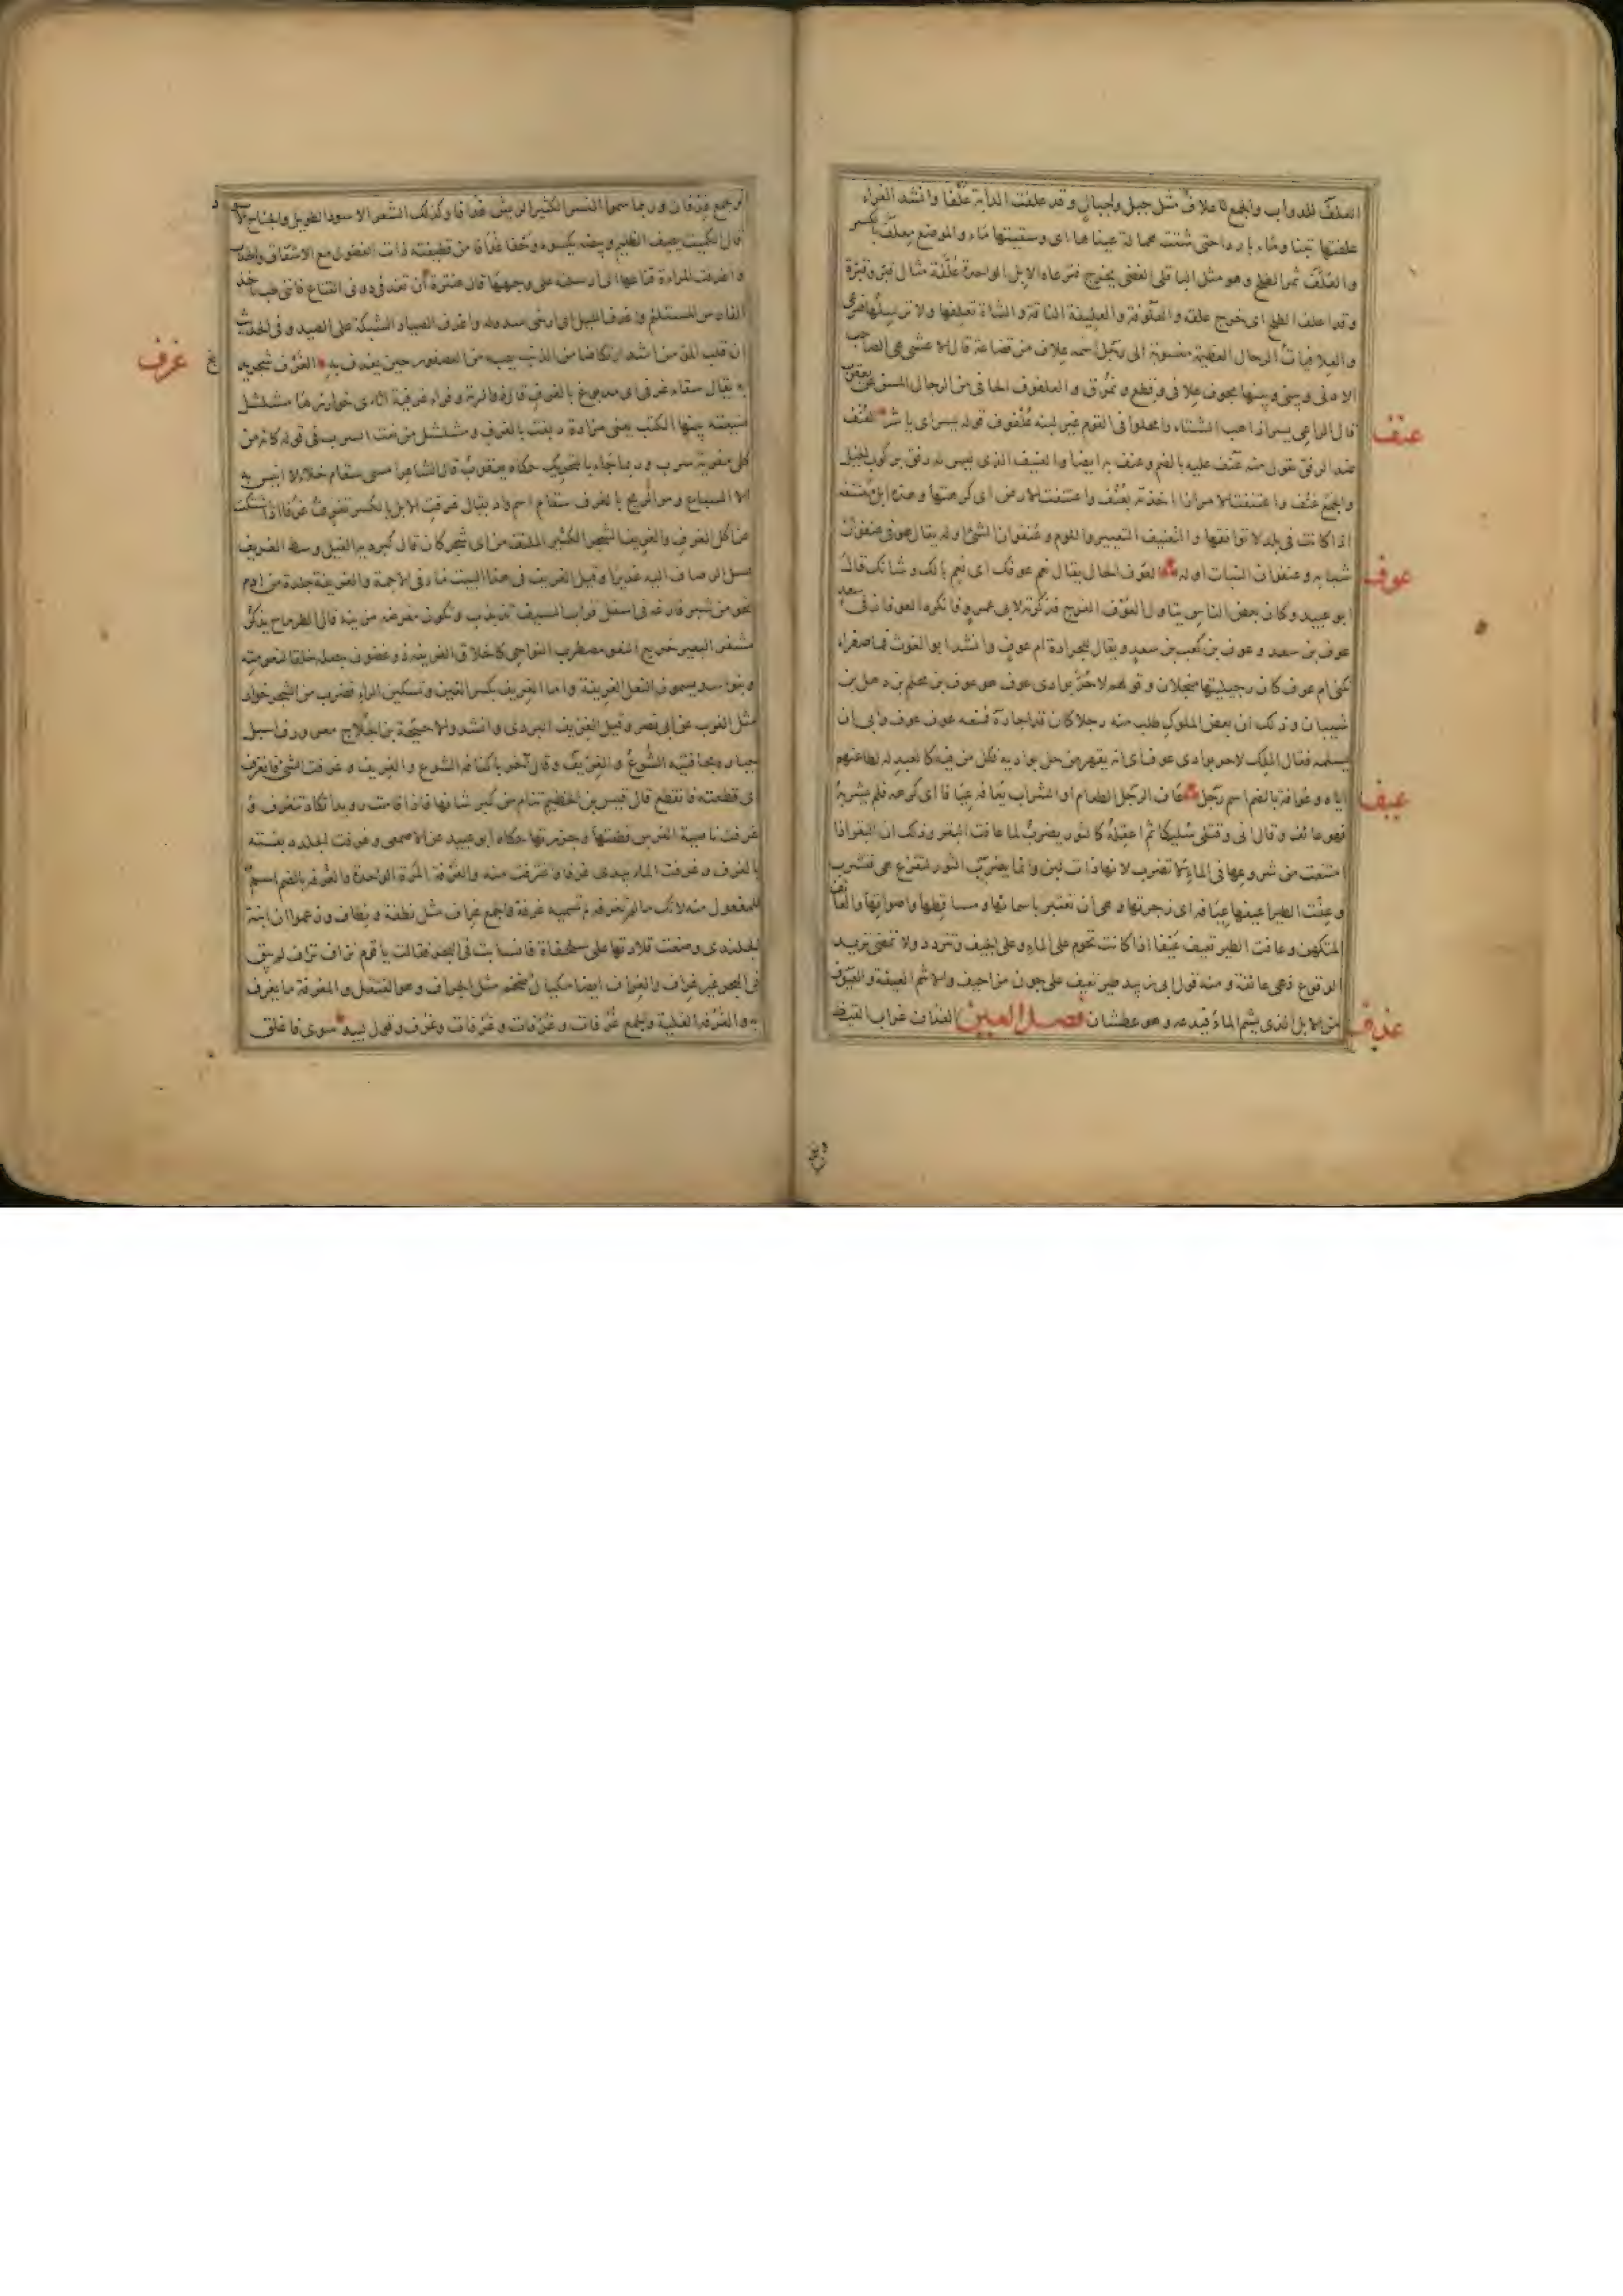 العلف للدواب والجمع علاف مثل جبل وجبال وقد علفت الدابة علفا وانشد الفراء
علفتها تبنا وماء باردا حتى شتت همالة عيناها اى وسقيتها ماء والموضع معلف بالكسر
والعلف ثمر الطلح وهو مثل الباقلى الغض يخرج فترعاه الابل الواحدة علفة مثال قبر وقبرة
وقد اعلف الطلح اى خرج علفه والعلوفة والعليفة الناقة والشاة تعلفها ولا ترسلها فترعى
والعلافيات الرحال العظيمة منسوبة الى رجل اسمه علاف من قضاعة قال الاعشى هى الصاحب
الادنى وبينى وبينها مجوف علافى وقطع ونمرق والعلفوف الجافى من الرجال المسن عن يعقوب
قال الراعى يسر اذا هب الشتاء وامحلوا فى القوم غير لبنة علفوف قوله يسر اى ياسر العنف
عنف
ضد الرفق تقول منه عنف عليه بالضم وعنف به ايضا والعنيف الذى ليس له رفق بركوب الخيل
والجمع عنف واعتنفت الامر اذا اخذته بعنف واعتنفت الارض اى كرهتها وهذه ابل معتنفة
اذا كانت فى بلد لا توافقها والتعنيف التعيير واللوم وعنفوان الشئ اوله يقال هو فى عنفوان
شبابه وعنفوان النبات اوله العوف الحال يقال نعم عوفك اى نعم بالك وشانك قال
عوف
ابو عبيد وكان بعض الناس يتاول العوف الفرج فذكرته لابى عمرو فانكره العوفان فى سعد
عوف بن سعد وعوف بن كعب بن سعد ويقال للجرادة ام عوف وانشد ابو الغوث فما صفراء
تكنى ام عوف كان رجيلتيها منجلان وقولهم لا حر بوادى عوف هو عوف بن محلم بن ذهل بن
شيبان وذلك ان بعض الملوك طلب منه رجلا كان قد اجاره فمنعه عوف وابى ان
يسلمه فقال الملك لا حر بوادى عوف اى انه يقهر من حل بواديه فكل من فيه كالعبيد له لطاعتهم
اياه وعوافة بالضم اسم رجل عاف الرجل الطعام او الشراب يعافه عيافا اى كرهه فلم يشربه
عيف
فهو عائف وقال انى وقتلى سليكا ثم اعقله كالثور يضرب لما عافت البقر وذلك ان البقر اذا
امتنعت من شروعها فى الماء لا تضرب لانها ذات لبن وانما يضرب الثور لتفزع هى فتشرب
وعفت الطير اعيفها عيافة اى زجرتها وهى ان تعتبر باسمائها ومساقطها واصواتها والعائف
المتكهن وعافت الطير تعيف عيفا اذا كانت تحوم على الماء وعلى الجيف وتتردد ولا تمضى تريد
الوقوع فهى عائفة ومنه قول ابى زبيد طير تعيف على جون مزاحيف والاسم العيفة والعيوف
من الابل الذى يشم الماء فيدعه وهو عطشان فصل الغين الغداف غراب القيظ
غدف
والجمع غدفان وربما سموا النسر الكثير الريش غدافا وكذلك الشعر الاسود الطويل والجناح الاسود
قال الكميت يصف الظليم وبيضه يكسوه وحفا غدافا من قطيفته ذات الفضول مع الاشفاق والحدب
واغدفت المراة قناعها اى ارسلته على وجهها قال عنترة ان تغدفى دونى القناع فاننى طب باخذ
الفارس المستلئم واغدف الليل اى ارخى سدوله واغدف الصياد الشبكة على الصيد وفى الحديث
ان قلب المؤمن اشد ارتكاضا من الذنب يصيبه من العصفور حين يغدف به الغرف شجر يدبغ
غرف
به يقال سقاء غرفى اى مدبوغ بالغرف قال ذو الرمة وفراء غرفية اثاى خوارزها مشلشل
ضيعته بينها الكتب يعنى مزادة دبغت بالغرف ومشلشل من نعت السرب فى قوله كانه من
كلى مفرية سرب وربما جاء بالتحريك حكاه يعقوب قال الشاعر امسى سقام خلاء لا انيس به
الا السباع ومر الريح بالغرف سقام اسم واد يقال غرفت الابل بالكسر تغرف غرفا اذا اشتكت
عن اكل الغرف والغريف الشجر الكثير الملتف من اى شجر كان قال كبردية الغيل وسط الغريف
نحو من شبر فارغة فى اسفل قراب السيف تذبذب وتكون مفرضة مزينة قال الطرماح يذكر
مشفر البعير خريع النعو مضطرب النواحى كاخلاق الغريفة ذى غضون جعله خلقا لنعومته
وبنو اسد يسمون النعل الغريفة واما الغريف بكسر الغين وتسكين الراء فضرب من الشجر خوار
مثل الغرب عن ابى نصر وقيل الغريف البردى وانشد لاحيحة بن الجلاح معرورف اسبل
جباره بحافتيه الشوع والغريف وقال آخر باكناف الشوع والغريف وغرفت الشئ فانغرف
اى قطعته فانقطع قال قيس بن الخطيم تنام عن كبر شانها فاذا قامت رويدا تكاد تنغرف و
غرفت ناصية الفرس قطعتها وجززتها حكاه ابو عبيد عن الاصمعى وغرفت الجلد دبغته
بالغرف وغرفت الماء بيدى غرفا واغترفت منه والغرفة المرة الواحدة والغرفة بالضم اسم
للمفعول منه لانك ما لم تغرفه لا تسميه غرفة والجمع غراف مثل نطفة ونطاف وزعموا ان ابنة
الجلندى وضعت قلادتها على سلحفاة فانسابت فى البحر فقالت يا قوم نزاف نزاف لم يبق
فى البحر غير غراف والغراف ايضا مكيال ضخم مثل الجراف وهو القنقل والمغرفة ما يغرف
به والغرفة العلية والجمع غرفات وغرفات وغرفات وغرف وقول لبيد سوى فاغلق